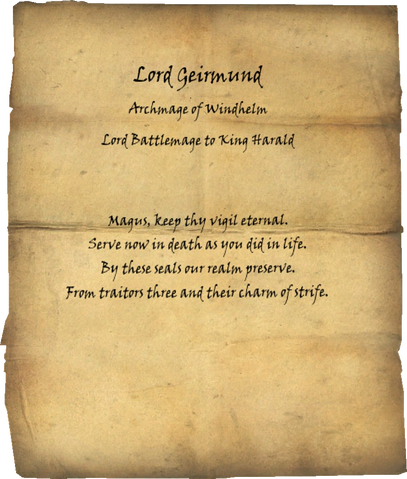 Lord Geirmund
Archmage of Windhelm
Lord Battlemage to King Harald
Magus, keep thy vigil eternal.
Serve now in death as you did in life.
By these seals our realm preserve.
From traitors three and their charm of strife.